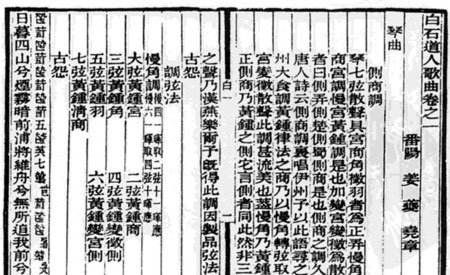 白石道人歌曲卷之一
番陽 姜夔 堯章
琴曲
側商調
琴七弦散聲具宮商角徵羽者為正弄慢角
商宮調慢宮黃鍾調是也加變宮變徵為散
者曰側弄側楚側蜀側商是也側商之調久
唐人詩云側商調裏唱伊州予以此語尋之
州大食調黃鍾律法之商乃以慢角轉弦取
宮變徵散聲此調甚流美也蓋慢角乃黃鍾
正側商乃黃鍾之側它言側者同此然非三
白一
二
之聲乃漢燕樂爾既得此調因製品弦法
古怨
調弦法
慢角調
大弦黃鍾宮 二弦黃鍾商
三弦黃鍾角 四弦黃鍾變徵側
五弦黃鍾羽 六弦黃鍾變宮側
七弦黃鍾清商
古怨
日暮四山兮煙霧暗前浦將維舟兮無所追我前兮